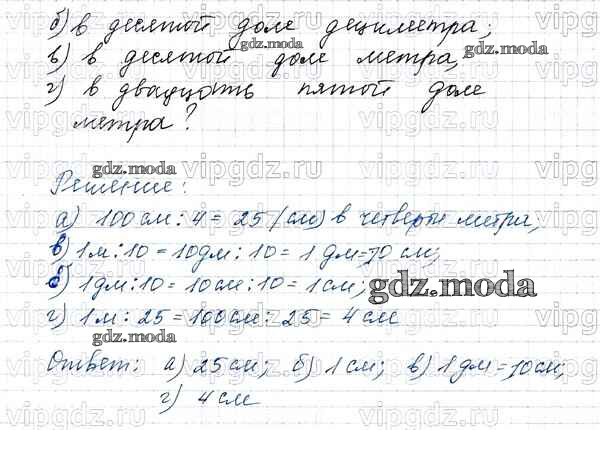 б) в десятой доле дециметра;
в) в десятой доле метра,
г) в двадцать пятой доле
метра?
Решение:
а) 100 см : 4 = 25 (см) в четверти метра;
в) 1 м : 10 = 10 дм : 10 = 1 дм = 10 см;
б) 1 дм : 10 = 10 см : 10 = 1 см;
г) 1 м : 25 = 100 см : 25 = 4 см
Ответ: а) 25 см; б) 1 см; в) 1 дм = 10 см;
г) 4 см
gdz.moda
gdz.moda
gdz.moda
gdz.moda
gdz.moda
vipgdz.ru